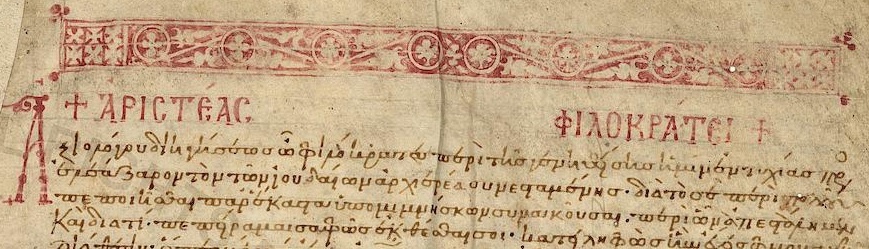 + ἈΡΙСΤΈΑС ΦΙΛΟΚΡΆΤΕΙ +
Ἀξιολόγου διηγήσεως ὦ φιλόκρατες περὶ τῆς γενηθείσης ἡμῖν ἐντυχίας πρὸς
ἐλεάζαρον τὸν τῶν ἰουδαίων ἀρχιερέα συνεσταμένης· διὰ τὸ σὲ περὶ πολλοῦ
πεποιῆσθαι παρέκαστα ὑπομιμνήσκων συνακοῦσαι· περὶ ὧν ἀπεστάλημεν
Καὶ διατί· πεπείραμαι σαφῶς ἐκθέσθαι σοι· κατειληφὼς ἣν ἔχεις